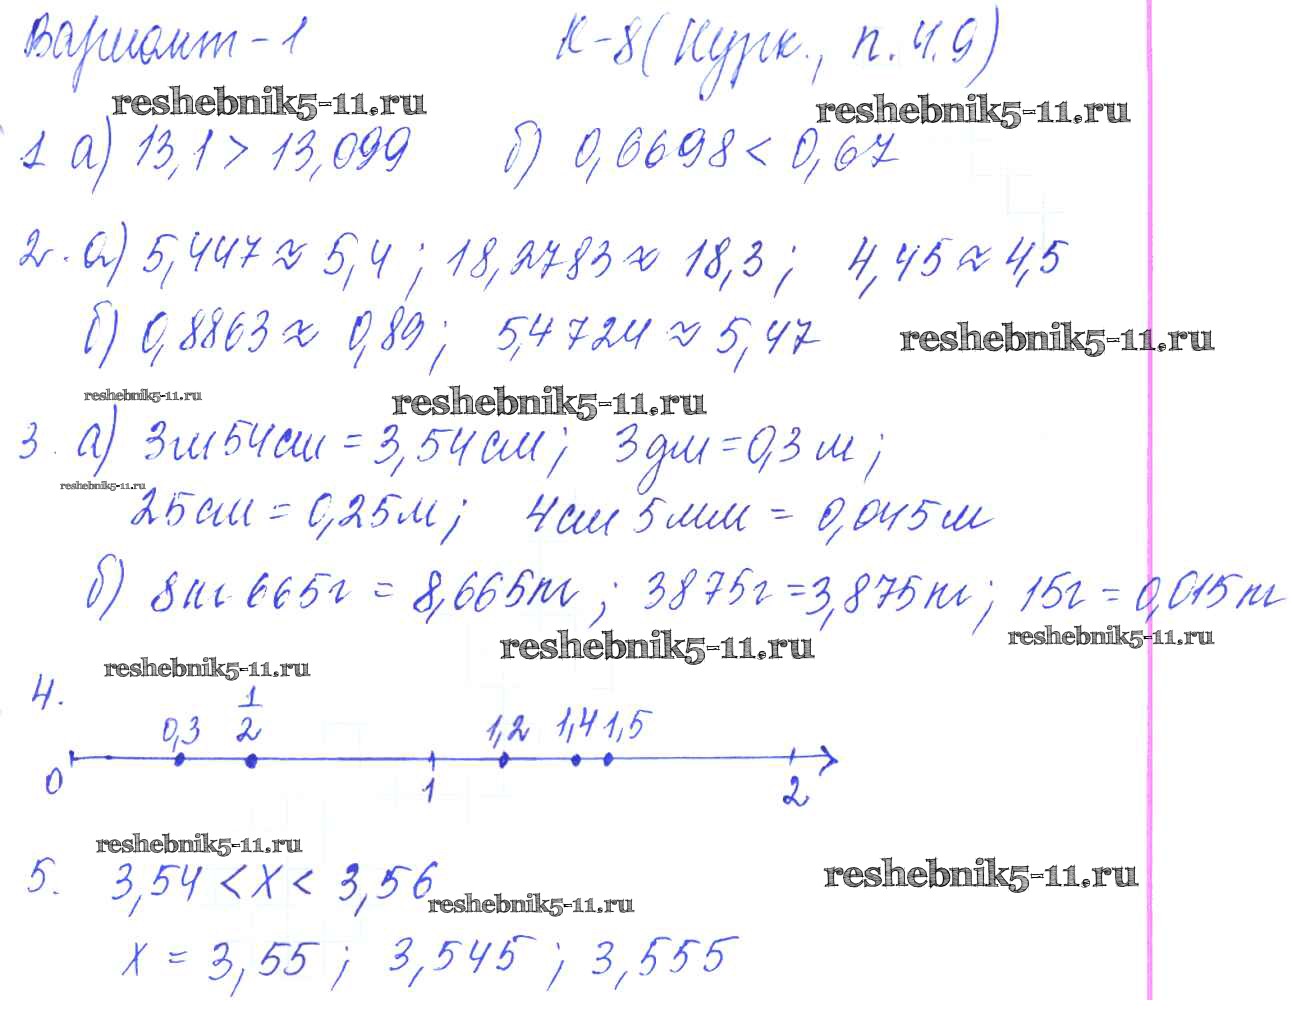 Вариант-1 К-8 (Нурк., п.4.9)
reshebnik5-11.ru reshebnik5-11.ru
1 а) 13,1 > 13,099 б) 0,6698 < 0,67
2. а) 5,447 ≈ 5,4 ; 18,2783 ≈ 18,3 ; 4,45 ≈ 4,5
б) 0,8863 ≈ 0,89 ; 5,4724 ≈ 5,47
reshebnik5-11.ru
reshebnik5-11.ru reshebnik5-11.ru
3. а) 3м 54см = 3,54 см ; 3 дм = 0,3 м ;
reshebnik5-11.ru
25см = 0,25м ; 4см 5мм = 0,045м
б) 8кг 665г = 8,665кг ; 3875г = 3,875кг ; 15г = 0,015кг
reshebnik5-11.ru reshebnik5-11.ru
reshebnik5-11.ru
4.
0,3 1/2 1,2 1,4 1,5
0 1 2
reshebnik5-11.ru
5. 3,54 < x < 3,56
reshebnik5-11.ru
reshebnik5-11.ru
x = 3,55 ; 3,545 ; 3,555